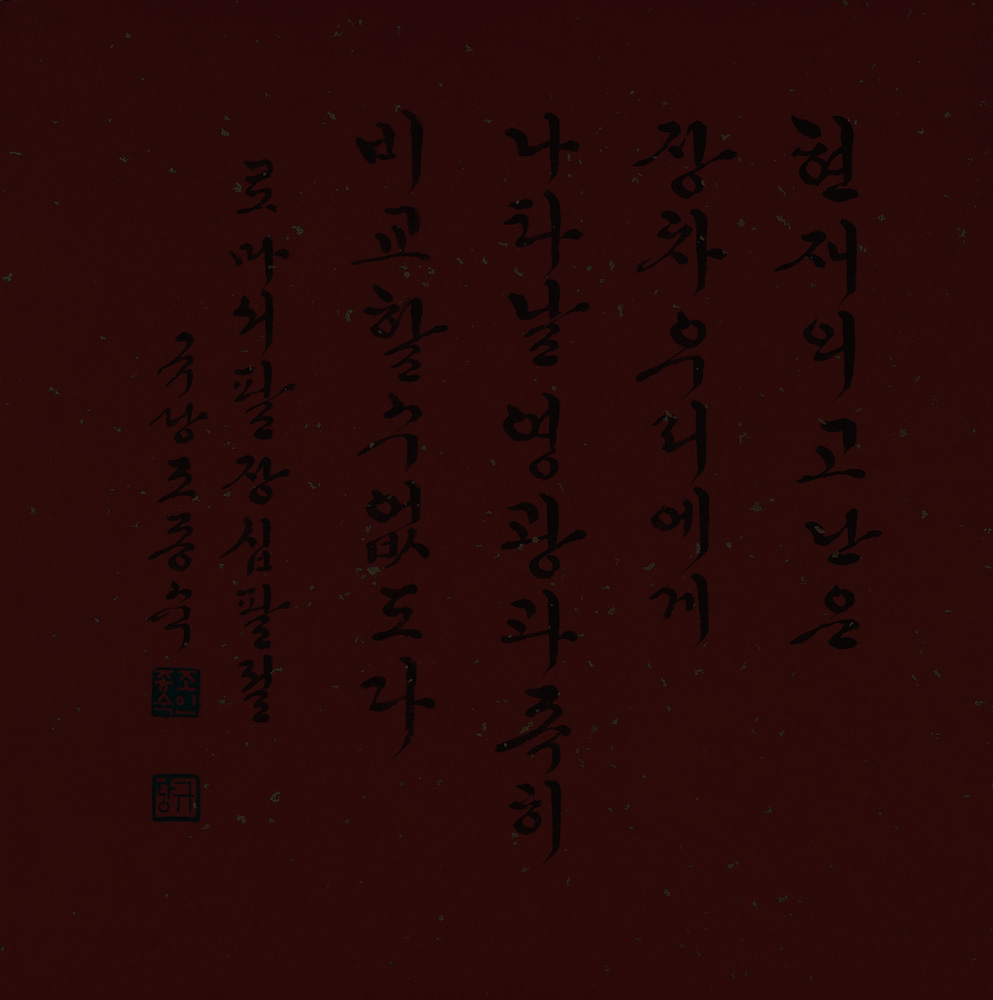 현재의고난은
장차우리에게
나타날영광과족히
비교할수없도다
로마서팔장십팔절
규당조종숙
조인종숙
규당